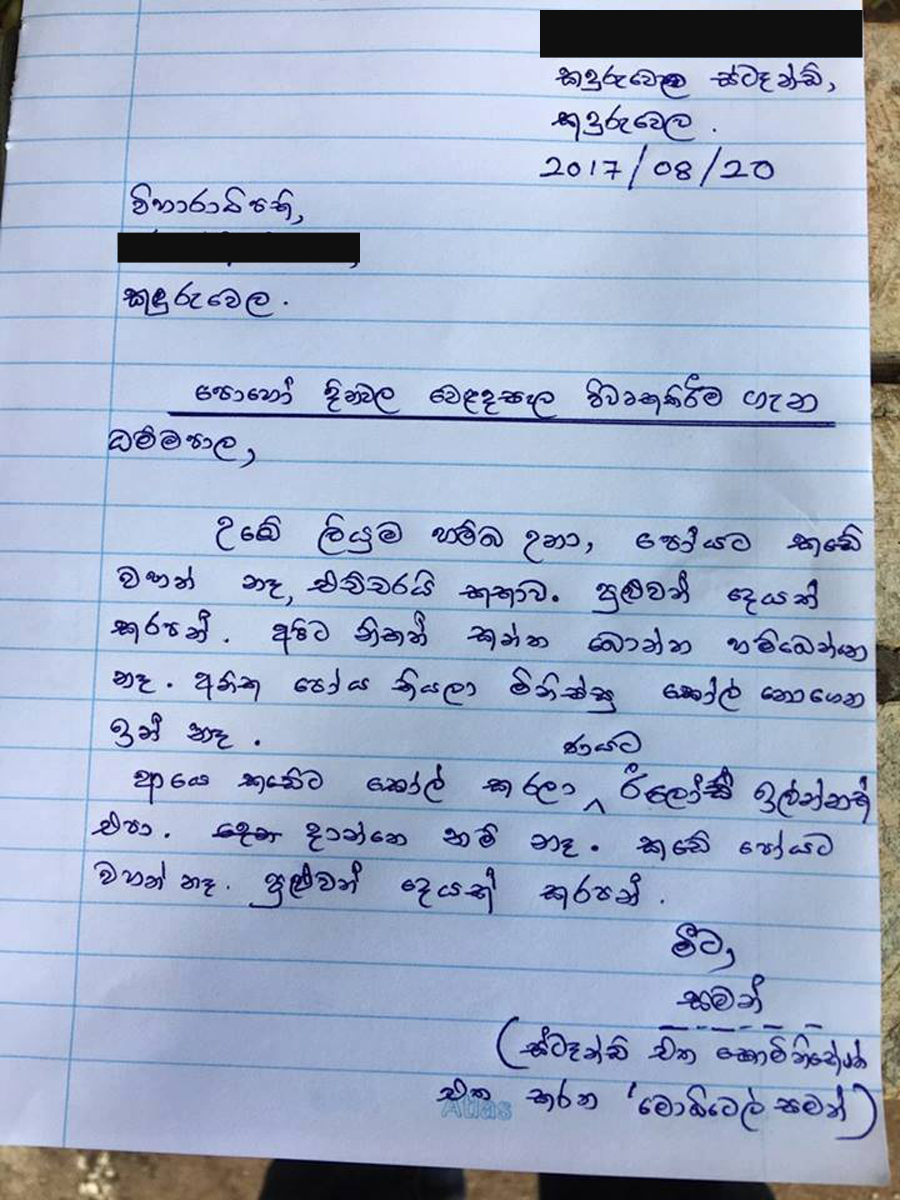 කදුරුවෙල ස්ටෑන්ඩ්,
කදුරුවෙල.
2017/08/20
විහාරාධිපති,
කදුරුවෙල.
පොහෝ දිනවල වෙළදසැල විවෘතකිරීම ගැන
ධම්මපාල,
උඹේ ලියුම හම්බ උනා, පෝයට කඩේ
වහන් නෑ, එච්චරයි කතාව. පුළුවන් දෙයක්
කරපන්. අපිට නිකන් කන්න බොන්න හම්බෙන්නෙ
නෑ. අනික පෝය කියලා මිනිස්සු කෝල් නොගෙන
ඉන් නෑ.
ණයට
ආයෙ කඩේට කෝල් කරලා ^ රීලෝඩ් ඉල්න්නත්
එපා. දාන්නෙ නම් නෑ. කඩේ පෝයට
වහන් නෑ. පුළුවන් දෙයක් කරපන්.
මීට,
සමන්
(ස්ටෑන්ඩ් එක
එක කරන 'මොබිටෙල් සමන්)
Atlas